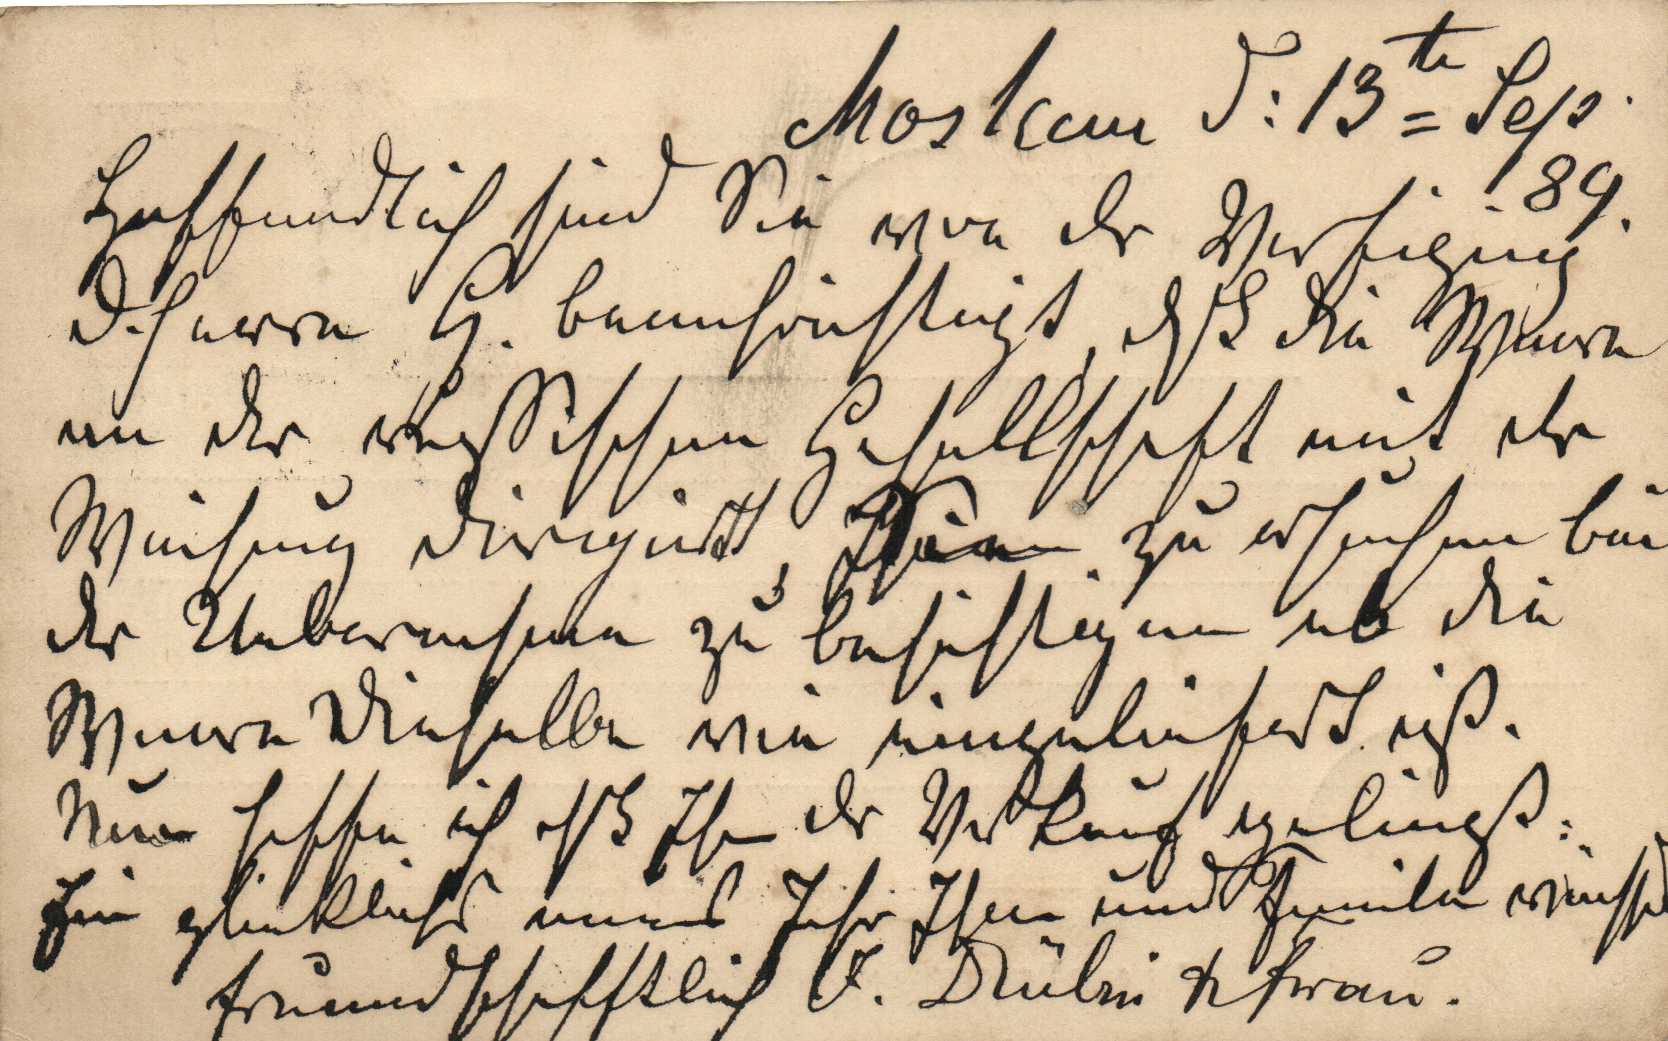 Moskau d: 13te Sep.
89.
Hoffendlich sind Sie von der Verfigung
d. Herrn H. benachrichtigt, daß die Waare
an der rußischen Gesellschaft mit der
Weisung dirigirt, Ihnen zu ersuchen bei
der Uebernahme zu besichtigen ob die
Waare dieselbe wie eingeliefert ist.
Nun hoffe ich daß Ihn der Verkauf gelingt:
Ein glückliches neues Jahr Ihnen und Familie wünscht
freundschafftlich J. & Frau.